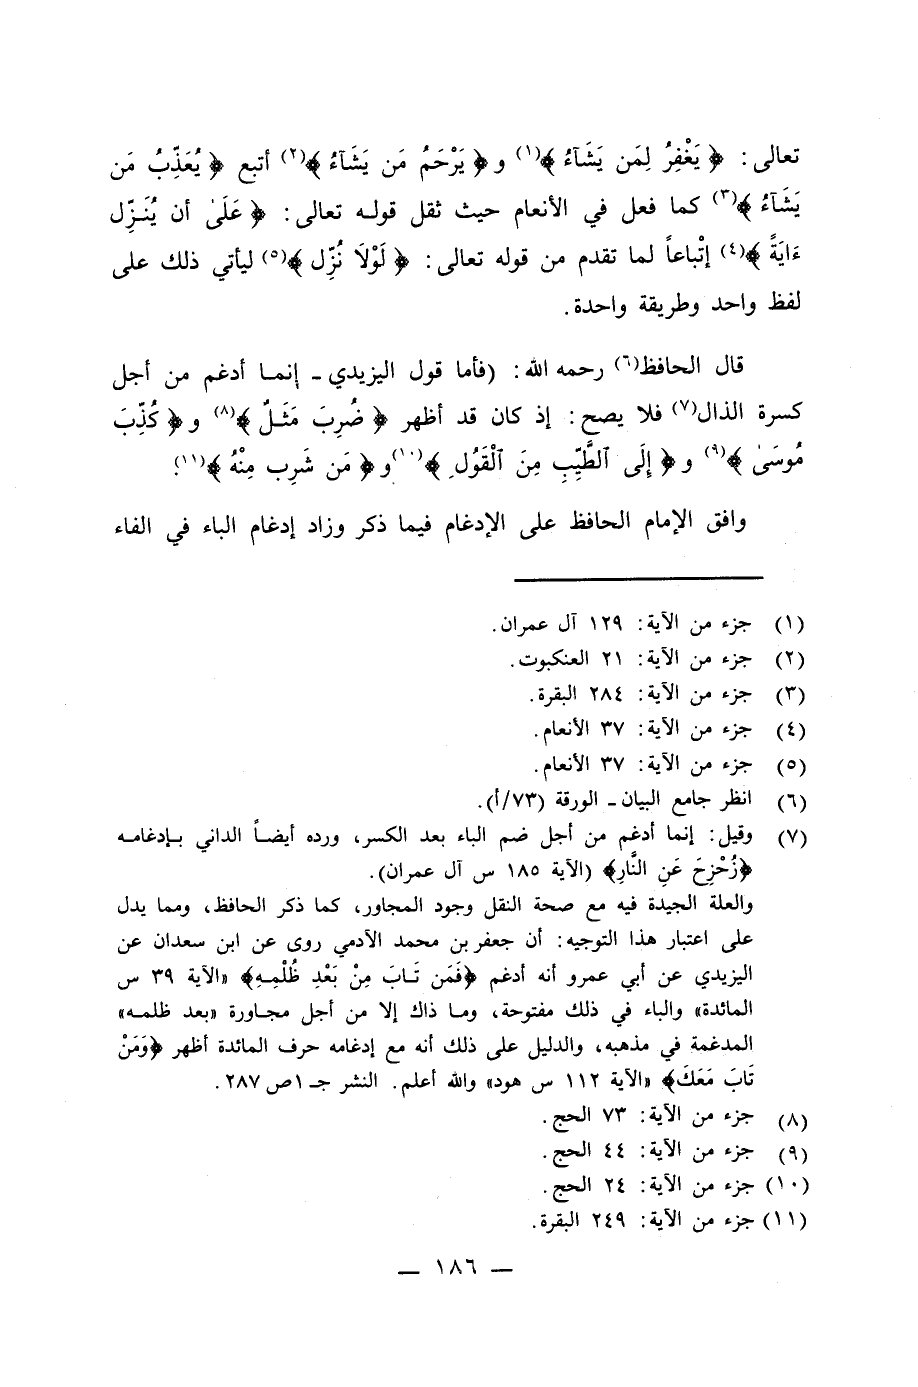 تعالى : ﴿ يَغْفِرُ لِمَن يَشَآءُ ﴾(١) و ﴿ يَرْحَمُ مَن يَشَآءُ ﴾(٢) أتبع ﴿ يُعَذِّبُ مَن
يَشَآءُ ﴾(٣) كما فعل في الأنعام حيث ثقل قولـه تعالى : ﴿ عَلَىٰ أن يُنَـزِّل
ءَايَةً ﴾(٤) إتْباعاً لما تقدم من قوله تعالى : ﴿ لَوْلَا نُزِّل ﴾(٥) ليأتي ذلك على
لفظ واحد وطريقة واحدة .
قال الحافظ(٦) رحمه الله : (فأما قول اليزيدي ـ إنمـا أدغم من أجل
كسرة الذال(٧) فلا يصح : إذ كان قد أظهر ﴿ ضُرِبَ مَثَـلٌ ﴾(٨) و ﴿ كُذِّبَ
مُوسَىٰ ﴾(٩) و ﴿ إِلَى ٱلطَّيِّبِ مِنَ ٱلْقَوْلِ ﴾(١٠) و ﴿ مَن شَرِب مِنْهُ ﴾(١١)).
وافق الإمام الحافظ على الإدغام فيما ذكر وزاد إدغام الباء في الفاء
(١) جزء من الآية : ١٢٩ آل عمران .
(٢) جزء من الآية : ٢١ العنكبوت .
(٣) جزء من الآية : ٢٨٤ البقرة .
(٤) جزء من الآية : ٣٧ الأنعام .
(٥) جزء من الآية : ٣٧ الأنعام .
(٦) انظر جامع البيان ـ الورقة (٧٣/أ) .
(٧) وقيل : إنما أدغم من أجل ضم الباء بعد الكسر ، ورده أيضـاً الداني بـإدغامـه
﴿زُحْزِحَ عَنِ النَّارِ﴾ (الآية ١٨٥ س آل عمران) .
والعلة الجيدة فيه مع صحة النقل وجود المجاور ، كما ذكر الحافظ ، ومما يدل
على اعتبار هذا التوجيه : أن جعفر بن محمد الآدمي روى عن ابن سعدان عن
اليزيدي عن أبي عمرو أنه أدغم ﴿فَمَن تَـابَ مِنْ بَعْدِ ظُلْمِـهِ﴾ «الآية ٣٩ س
المائدة» والباء في ذلك مفتوحة ، ومـا ذاك إلا من أجل مجـاورة «بعد ظلمه»
المدغمة في مذهبه ، والدليل على ذلك أنه مع إدغامه حرف المائدة أظهر ﴿وَمَنْ
تَابَ مَعَكَ﴾ «الآية ١١٢ س هود» والله أعلم . النشر جـ ١ ص ٢٨٧ .
(٨) جزء من الآية : ٧٣ الحج .
(٩) جزء من الآية : ٤٤ الحج .
(١٠) جزء من الآية : ٢٤ الحج .
(١١) جزء من الآية : ٢٤٩ البقرة .
— ١٨٦ —